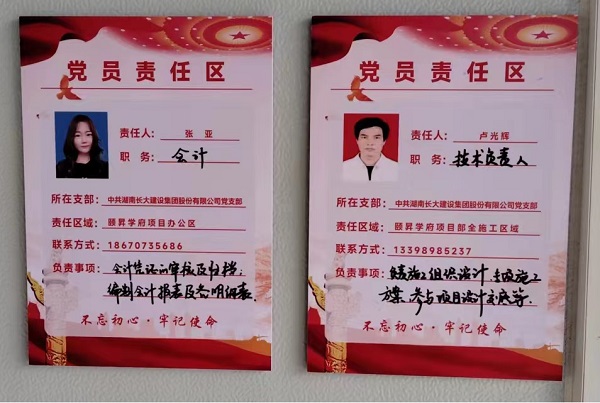 党员责任区
责任人：张亚
职务：会计
所在支部：中共湖南长大建设集团股份有限公司党支部
责任区域：颐昇学府项目办公区
联系方式：18670735686
负责事项：会计凭证的审核及归档，
编制会计报表及各明细表.
不忘初心·牢记使命
党员责任区
责任人：卢光辉
职务：技术负责人
所在支部：中共湖南长大建设集团股份有限公司党支部
责任区域：颐昇学府项目部全施工区域
联系方式：13398985237
负责事项：实施组织设计，施工
方案.参与项目设计
不忘初心·牢记使命